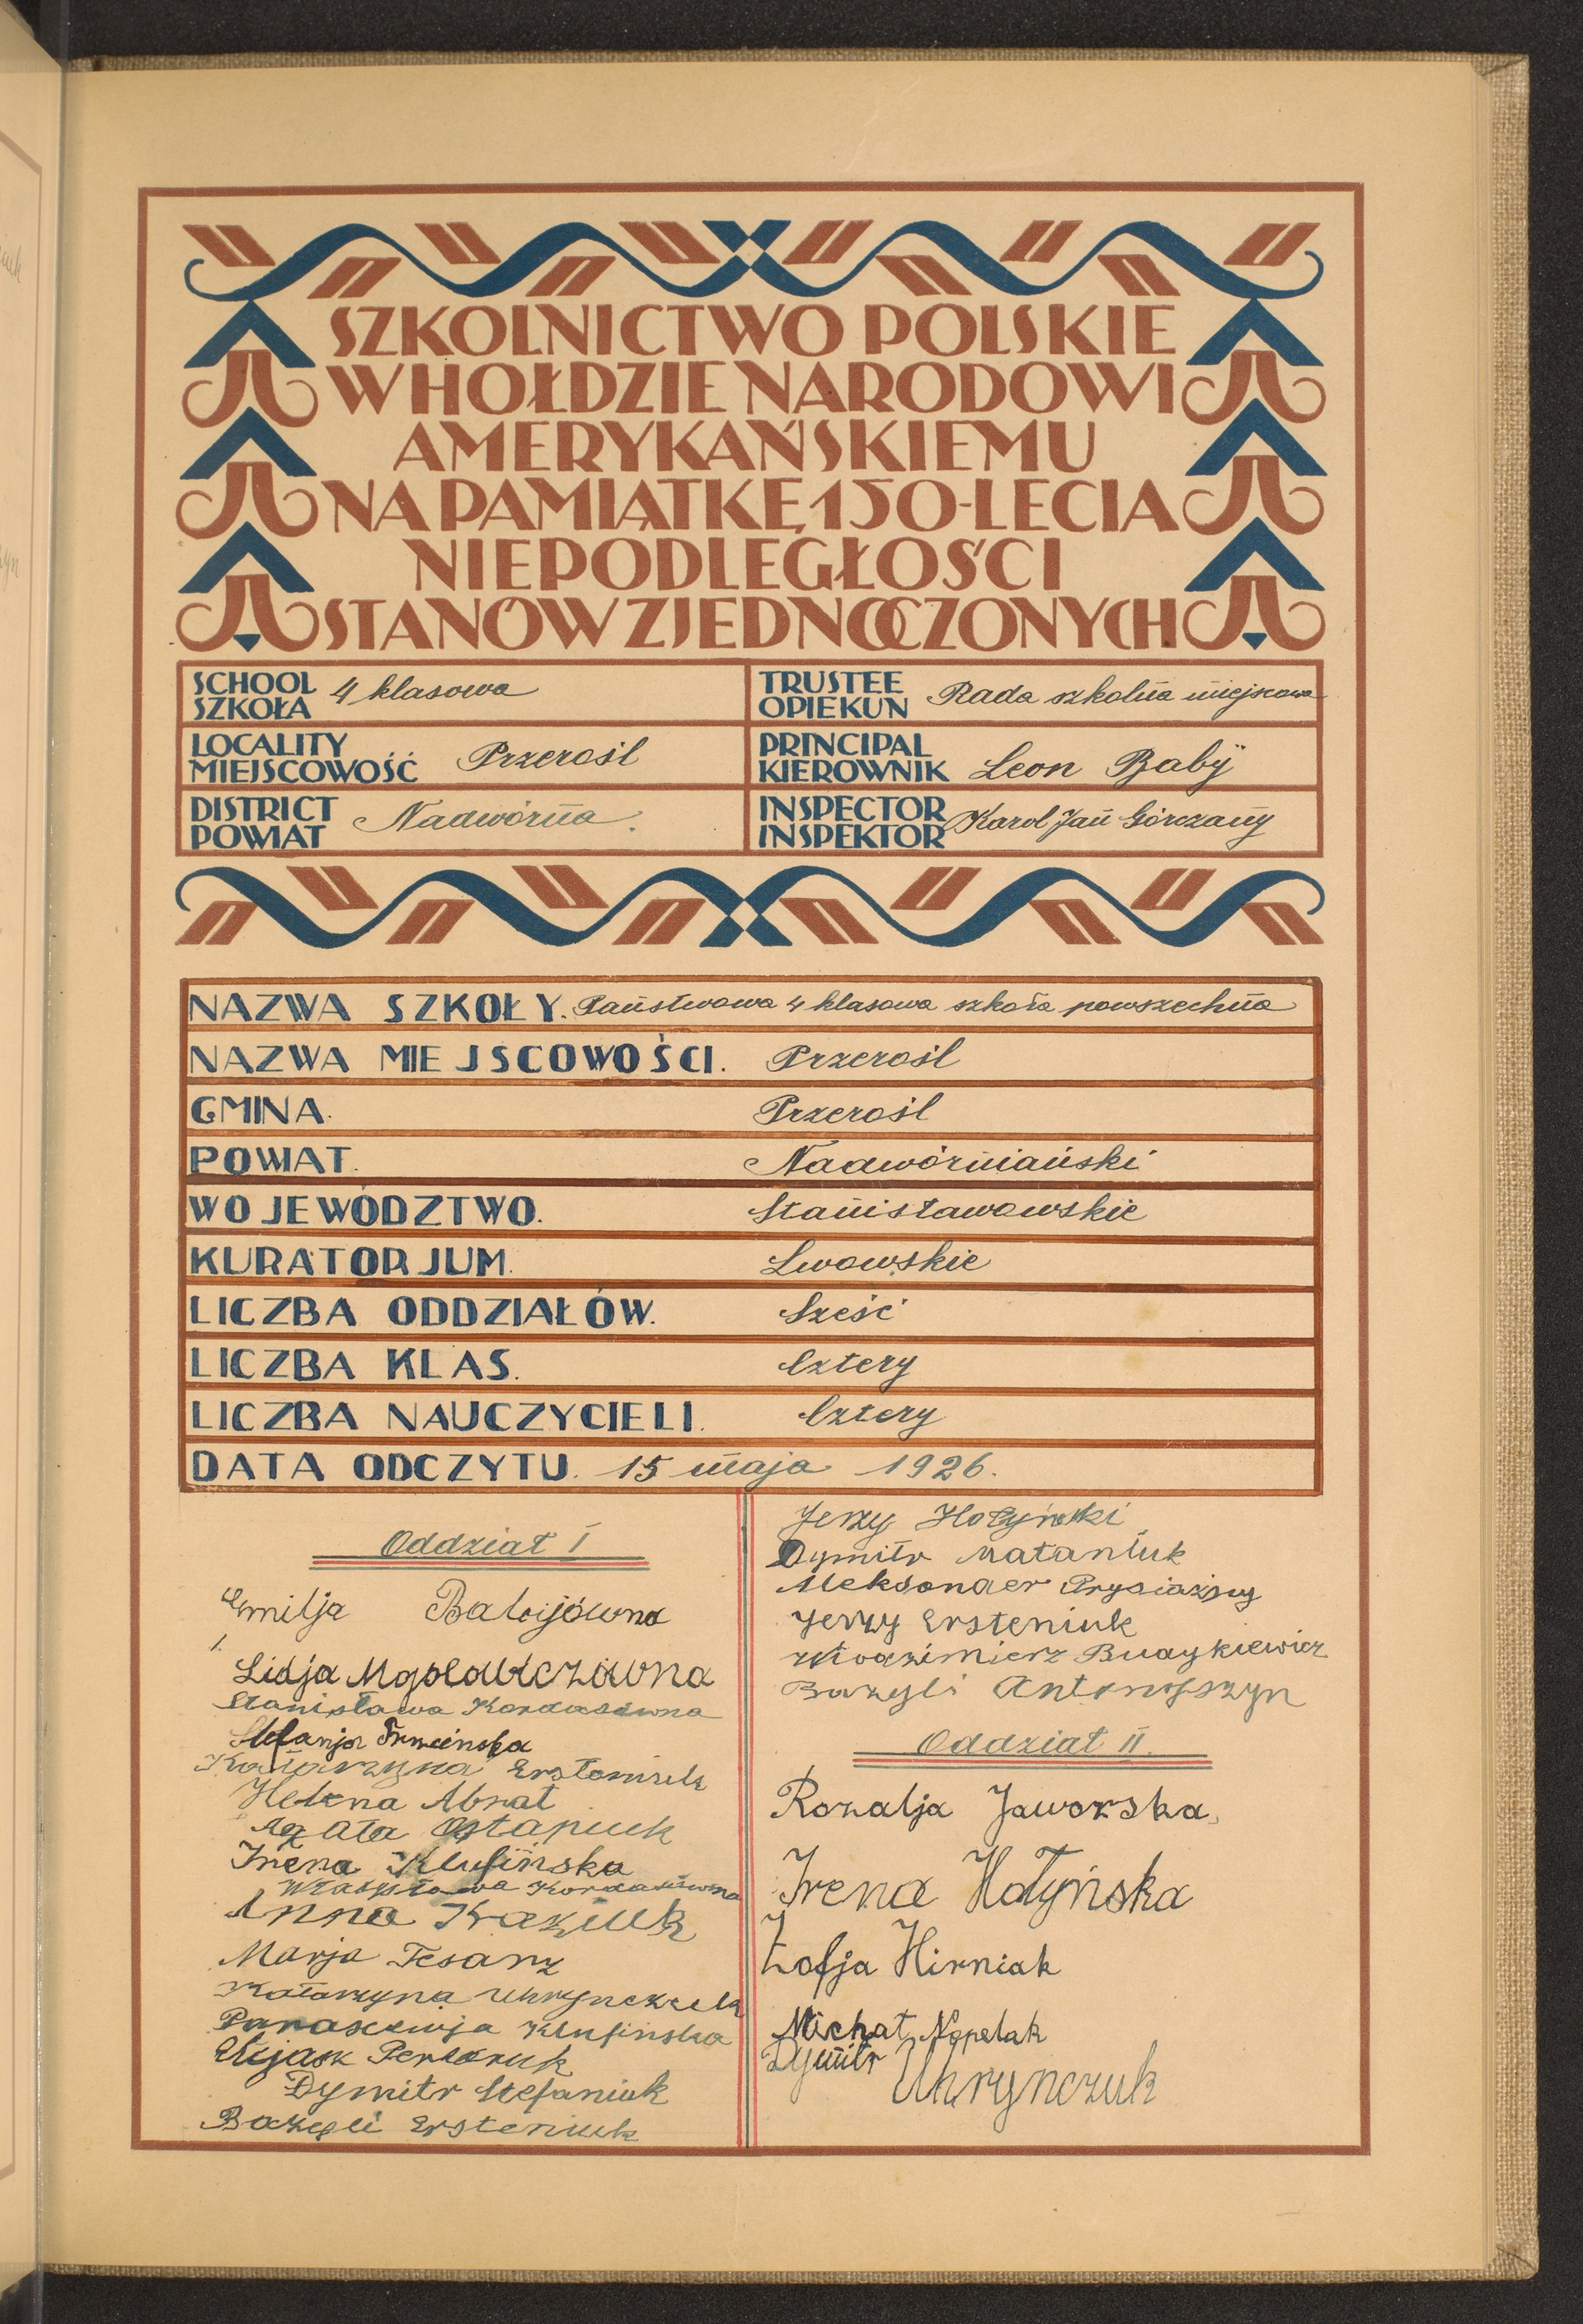 SZKOLNICTWO POLSKIE
W HOŁDZIE NARODOWI
AMERYKAŃSKIEMU
NA PAMIĄTKĘ 150-LECIA
NIEPODLEGŁOŚCI
STANÓW ZJEDNOCZONYCH
SCHOOL
SZKOŁA 4 klasowa
TRUSTEE
OPIEKUN Rada szkolna miejscowa
LOCALITY
MIEJSCOWOŚĆ Przerośl
PRINCIPAL
KIEROWNIK Leon Baby
DISTRICT
POWIAT Nadwórna.
INSPECTOR
INSPEKTOR Karol Jan Górczany
NAZWA SZKOŁY. Państwowa 4 klasowa szkoła powszechna
NAZWA MIEJSCOWOŚCI. Przerośl
GMINA. Przerośl
POWIAT. Nadwórniański
WOJEWÓDZTWO. Stanisławowskie
KURATORJUM. Lwowskie
LICZBA ODDZIAŁÓW. Sześć
LICZBA KLAS. Cztery
LICZBA NAUCZYCIELI. Cztery
DATA ODCZYTU. 15 maja 1926.
Oddział I
Emilja Babijówna
Lidja
Stanisława Kordasówna
Stefanja
Katarzyna
Helena Abrat
Agata Ostapiuk
Irena Klufińska
Władysława Kordasówna
Anna Kraziuk
Marja Tesarz
Katarzyna Uhrynczuk
Parascewja Klufinska
Dymitr Stefaniuk
Bazyli Ersteniuk
Jerzy Hołyński
Dymitr Mataniuk
Aleksander Prysiażny
Jerzy Ersteniuk
Włodzimierz Budykiewicz
Bazyli Antonyszyn
Oddział II.
Rozalja Jaworska.
Irena Hołyńska
Zofja Hirniak
Michał Napelak
Dymitr Uhrynczuk